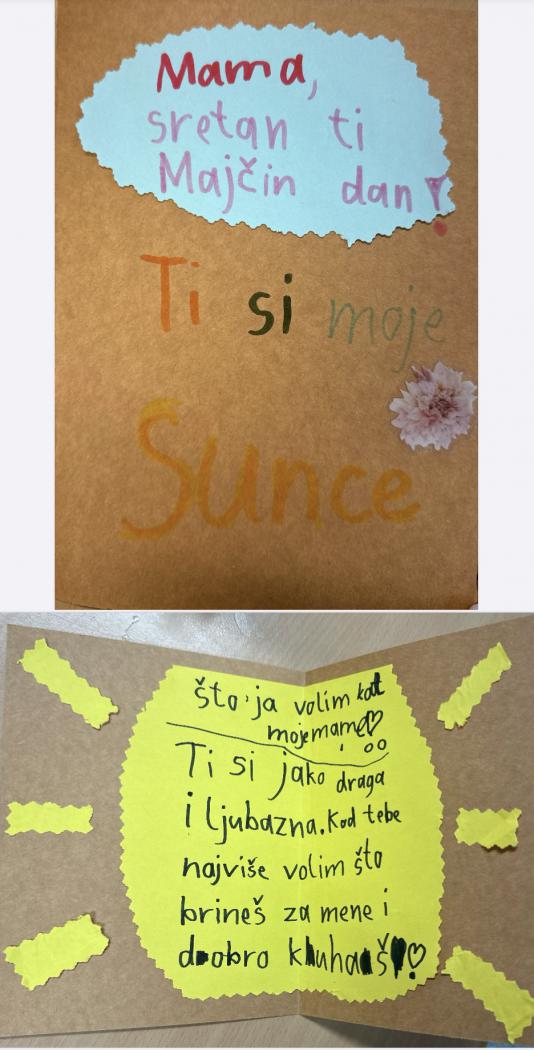 Mama,
sretan ti
Majčin dan!
Ti si moje
Sunce
što ja volim kod
moje mame
Ti si jako draga
i ljubazna. Kod tebe
najviše volim što
brineš za mene i
dobro kuhaš!